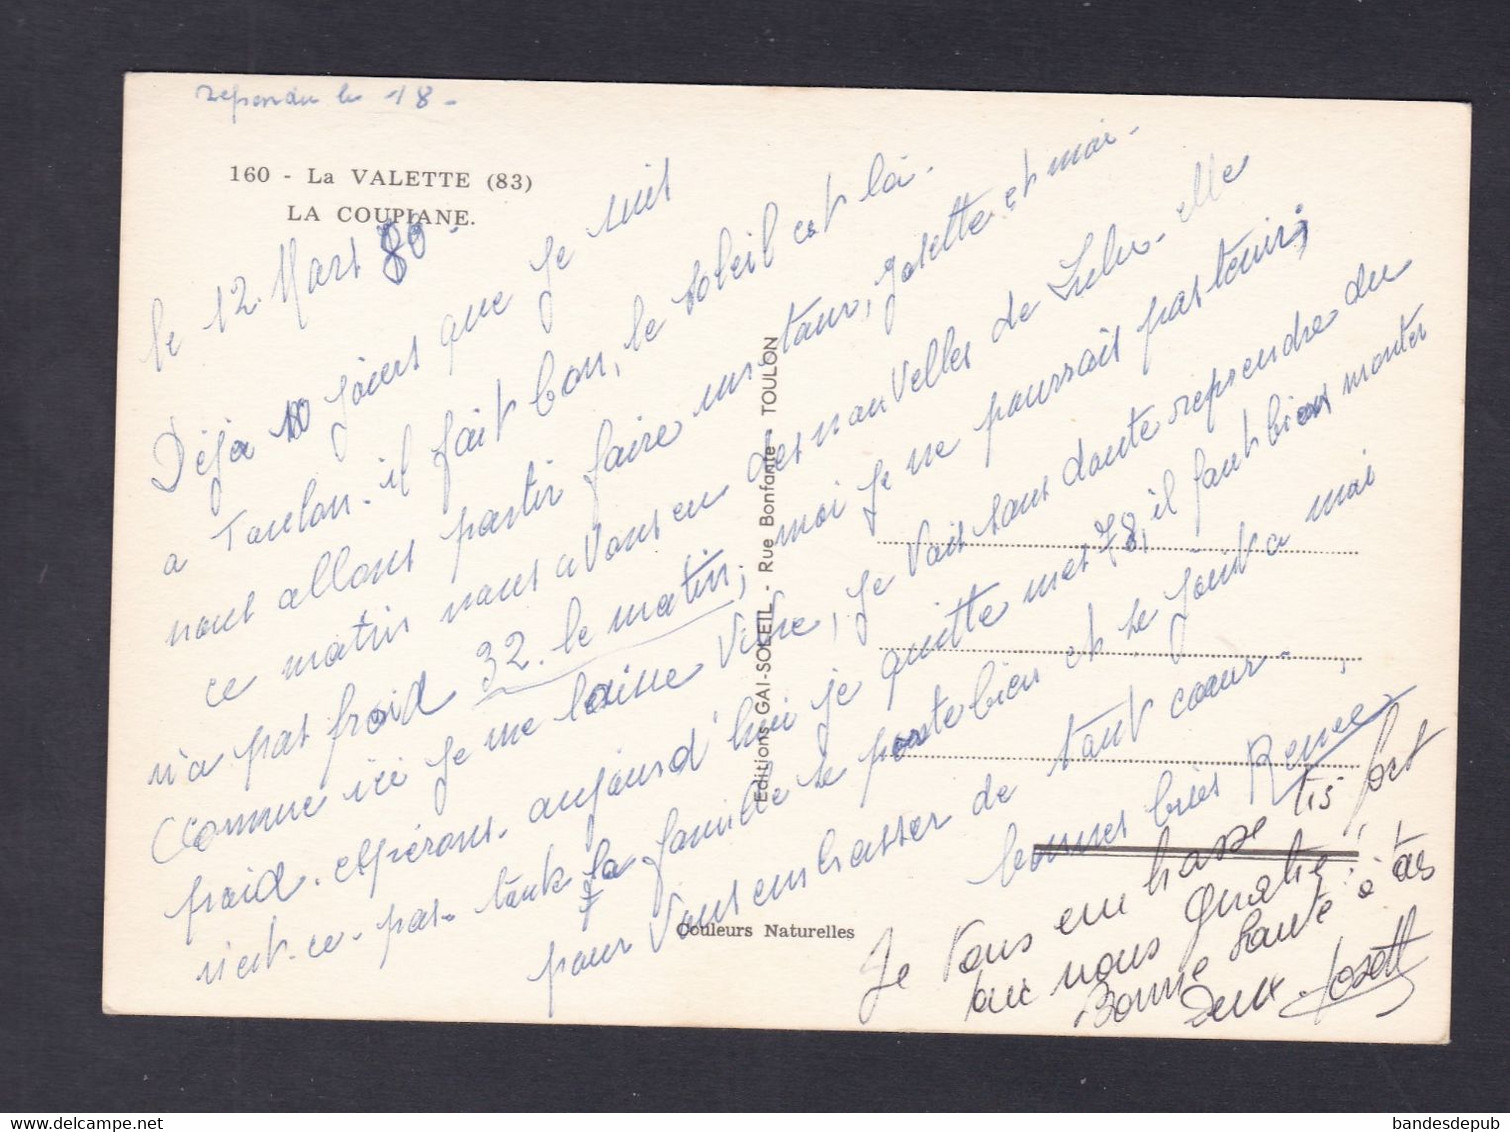 rependu le 18 -
160 - La VALETTE (83)
LA COUPIANE.
le 12. Mars 80.
Déja 10 jours que je suis
a Toulon. il fait bon, le soleil est là.
nous allons partir faire un tour, Josette et moi.
ce matin nous avons eu des nouvelles de Lulu. elle
n'a pas froid 32. le matin, moi je ne pourrait pas tenir,
comme ici je me laisse vivre, je vais sans doute reprendre du
froid. espérons. aujourd'hui je quitte mes 78, il faut bien monter
n'est-ce-pas. toute la famille se porte bien et se joint a moi
pour vous embrasser de tout coeur.
bonnes bises Renée
Je vous embrasse tis fort
ouc nous quatre!
Bonne Santé à tous
deux. Josette
Editions GAI-SOLEIL - Rue Bonfante - TOULON
Couleurs Naturelles
delcampe.net
bandesdepub